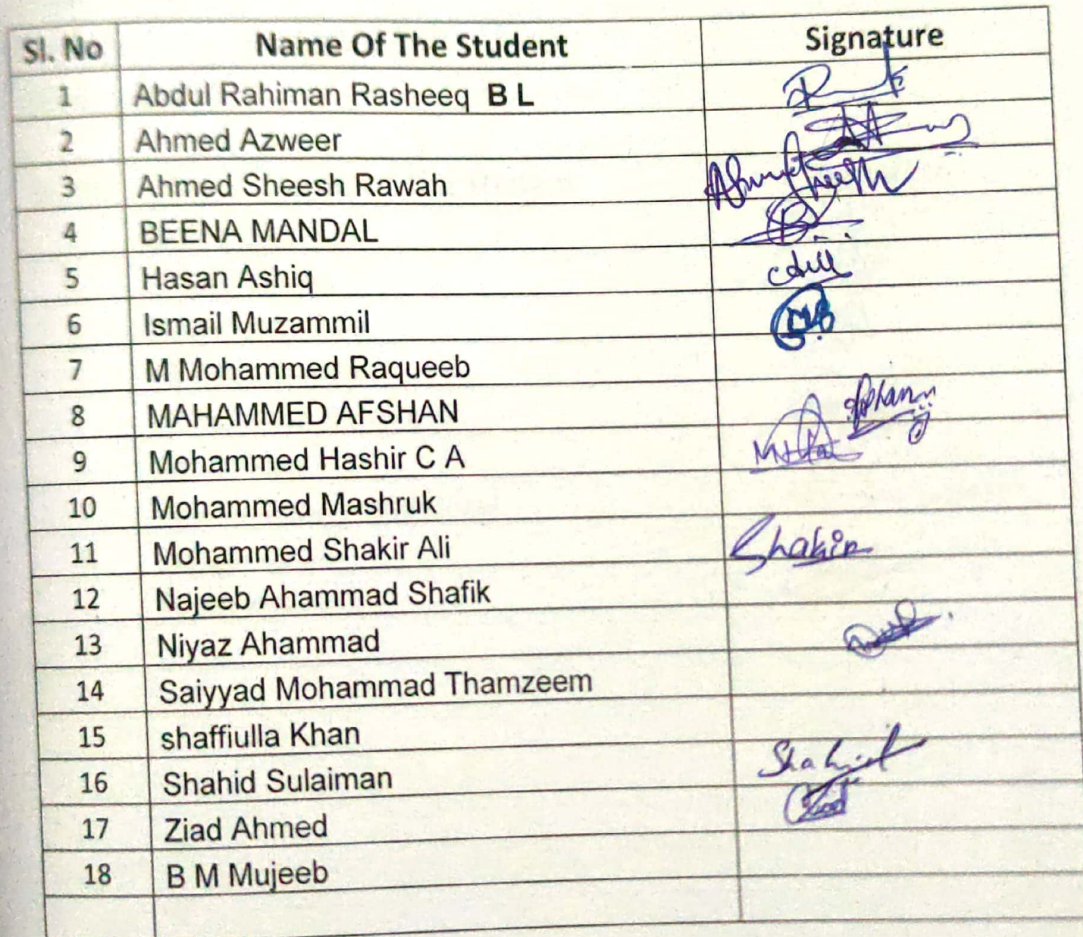 Sl. No Name Of The Student Signature
1 Abdul Rahiman Rasheeq B L
2 Ahmed Azweer
3 Ahmed Sheesh Rawah Ahmed Sheesh
4 BEENA MANDAL
5 Hasan Ashiq
6 Ismail Muzammil
7 M Mohammed Raqueeb
8 MAHAMMED AFSHAN Afshan
9 Mohammed Hashir C A
10 Mohammed Mashruk
11 Mohammed Shakir Ali Shakir
12 Najeeb Ahammad Shafik
13 Niyaz Ahammad
14 Saiyyad Mohammad Thamzeem
15 shaffiulla Khan
16 Shahid Sulaiman Shahid
17 Ziad Ahmed Ziad
18 B M Mujeeb